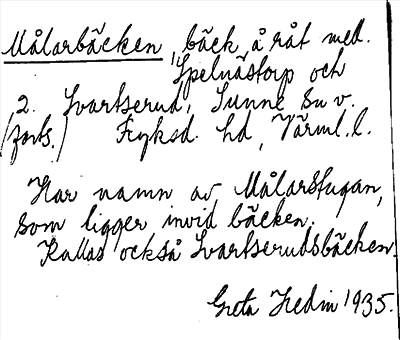 Målarbäcken, bäck, å råt med.
Spelnästorp och
2. Svartserud, Sunne sn v.
(forts.) Fryksd. hd, Värml. l.
Har namn av Målarstugan,
som ligger invid bäcken.
Kallas också Svartserudsbäcken.
Greta Hedin 1935.